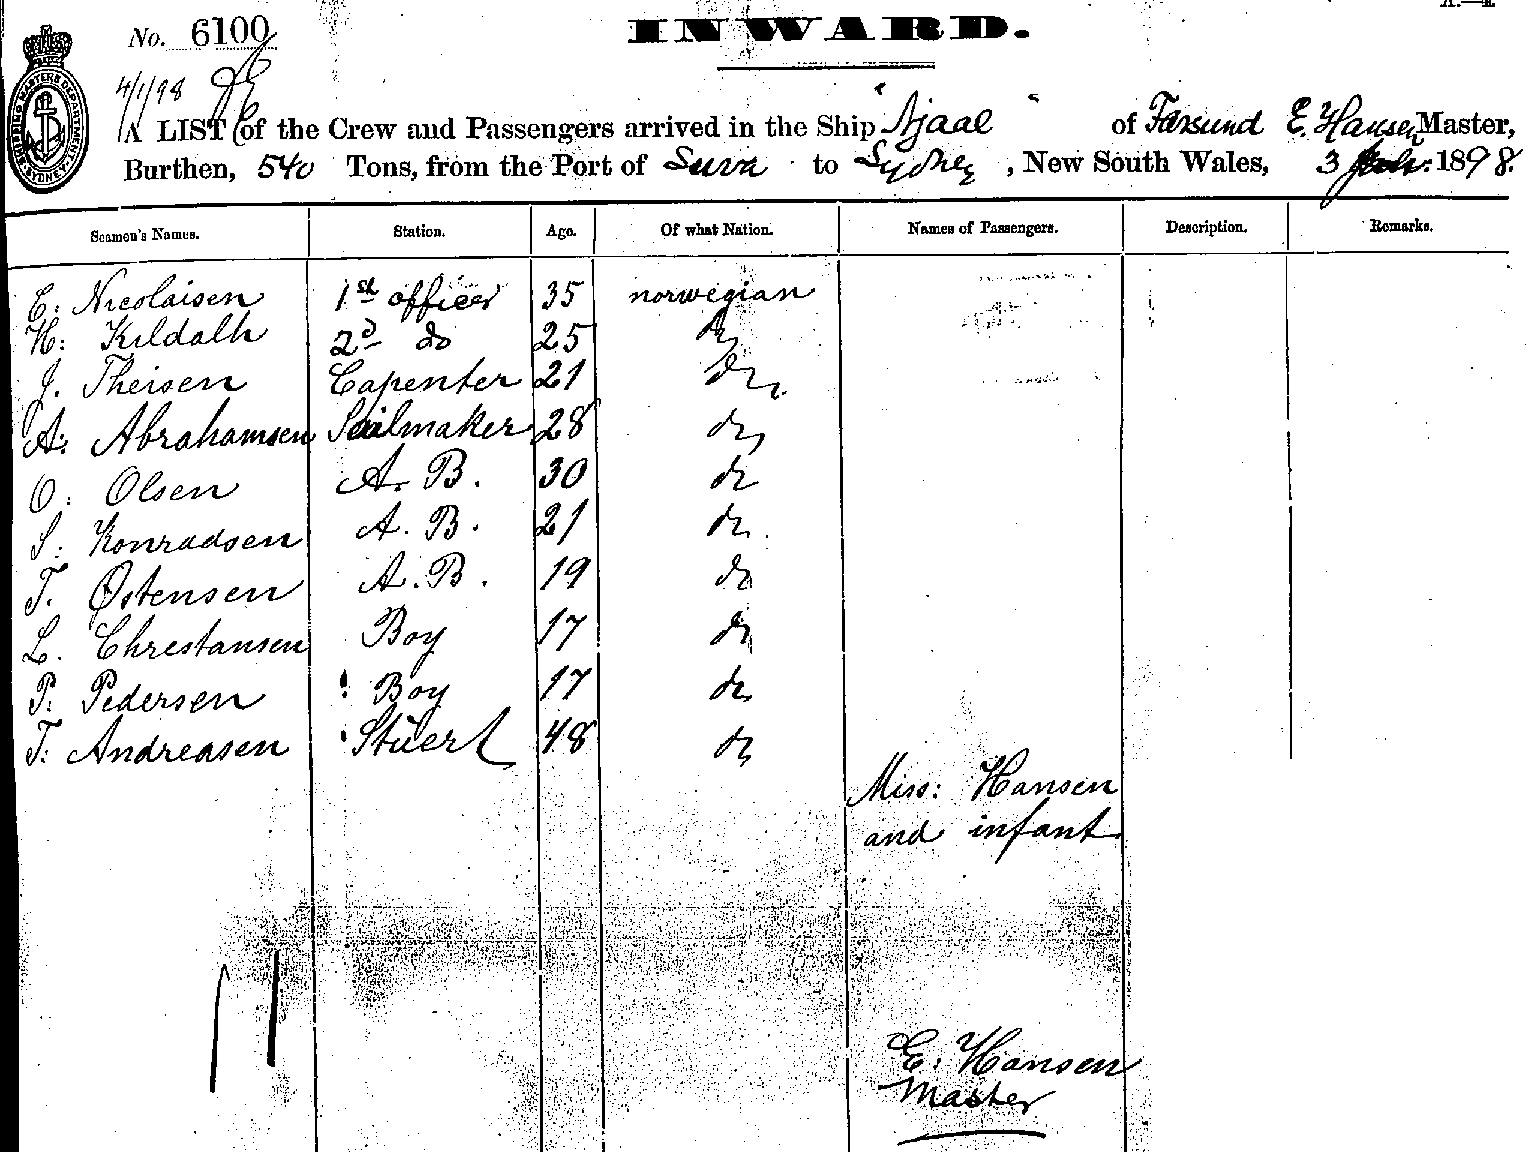 No. 6100
INWARD.
4/1/98
A LIST of the Crew and Passengers arrived in the Ship "Njaal" of Farsund E. Hansen Master,
Burthen, 540 Tons, from the Port of Suva to Sydney, New South Wales, 3 Jan: 1898.
Seamen's Names. Station. Age. Of what Nation. Names of Passengers. Description. Remarks.
E. Nicolaisen 1st officer 35 norwegian
H: Kildalh 2d do 25 do
J. Theisen Capenter 21 do
A: Abrahamsen Sailmaker 28 do
O: Olsen A. B. 30 do
S: Konradsen A. B. 21 do
T. Østensen A. B. 19 do
L. Chrestansen Boy 17 do
P: Pedersen Boy 17 do
T: Andreasen Stuert 48 do
Miss: Hansen
and infant
11
E. Hansen
Master